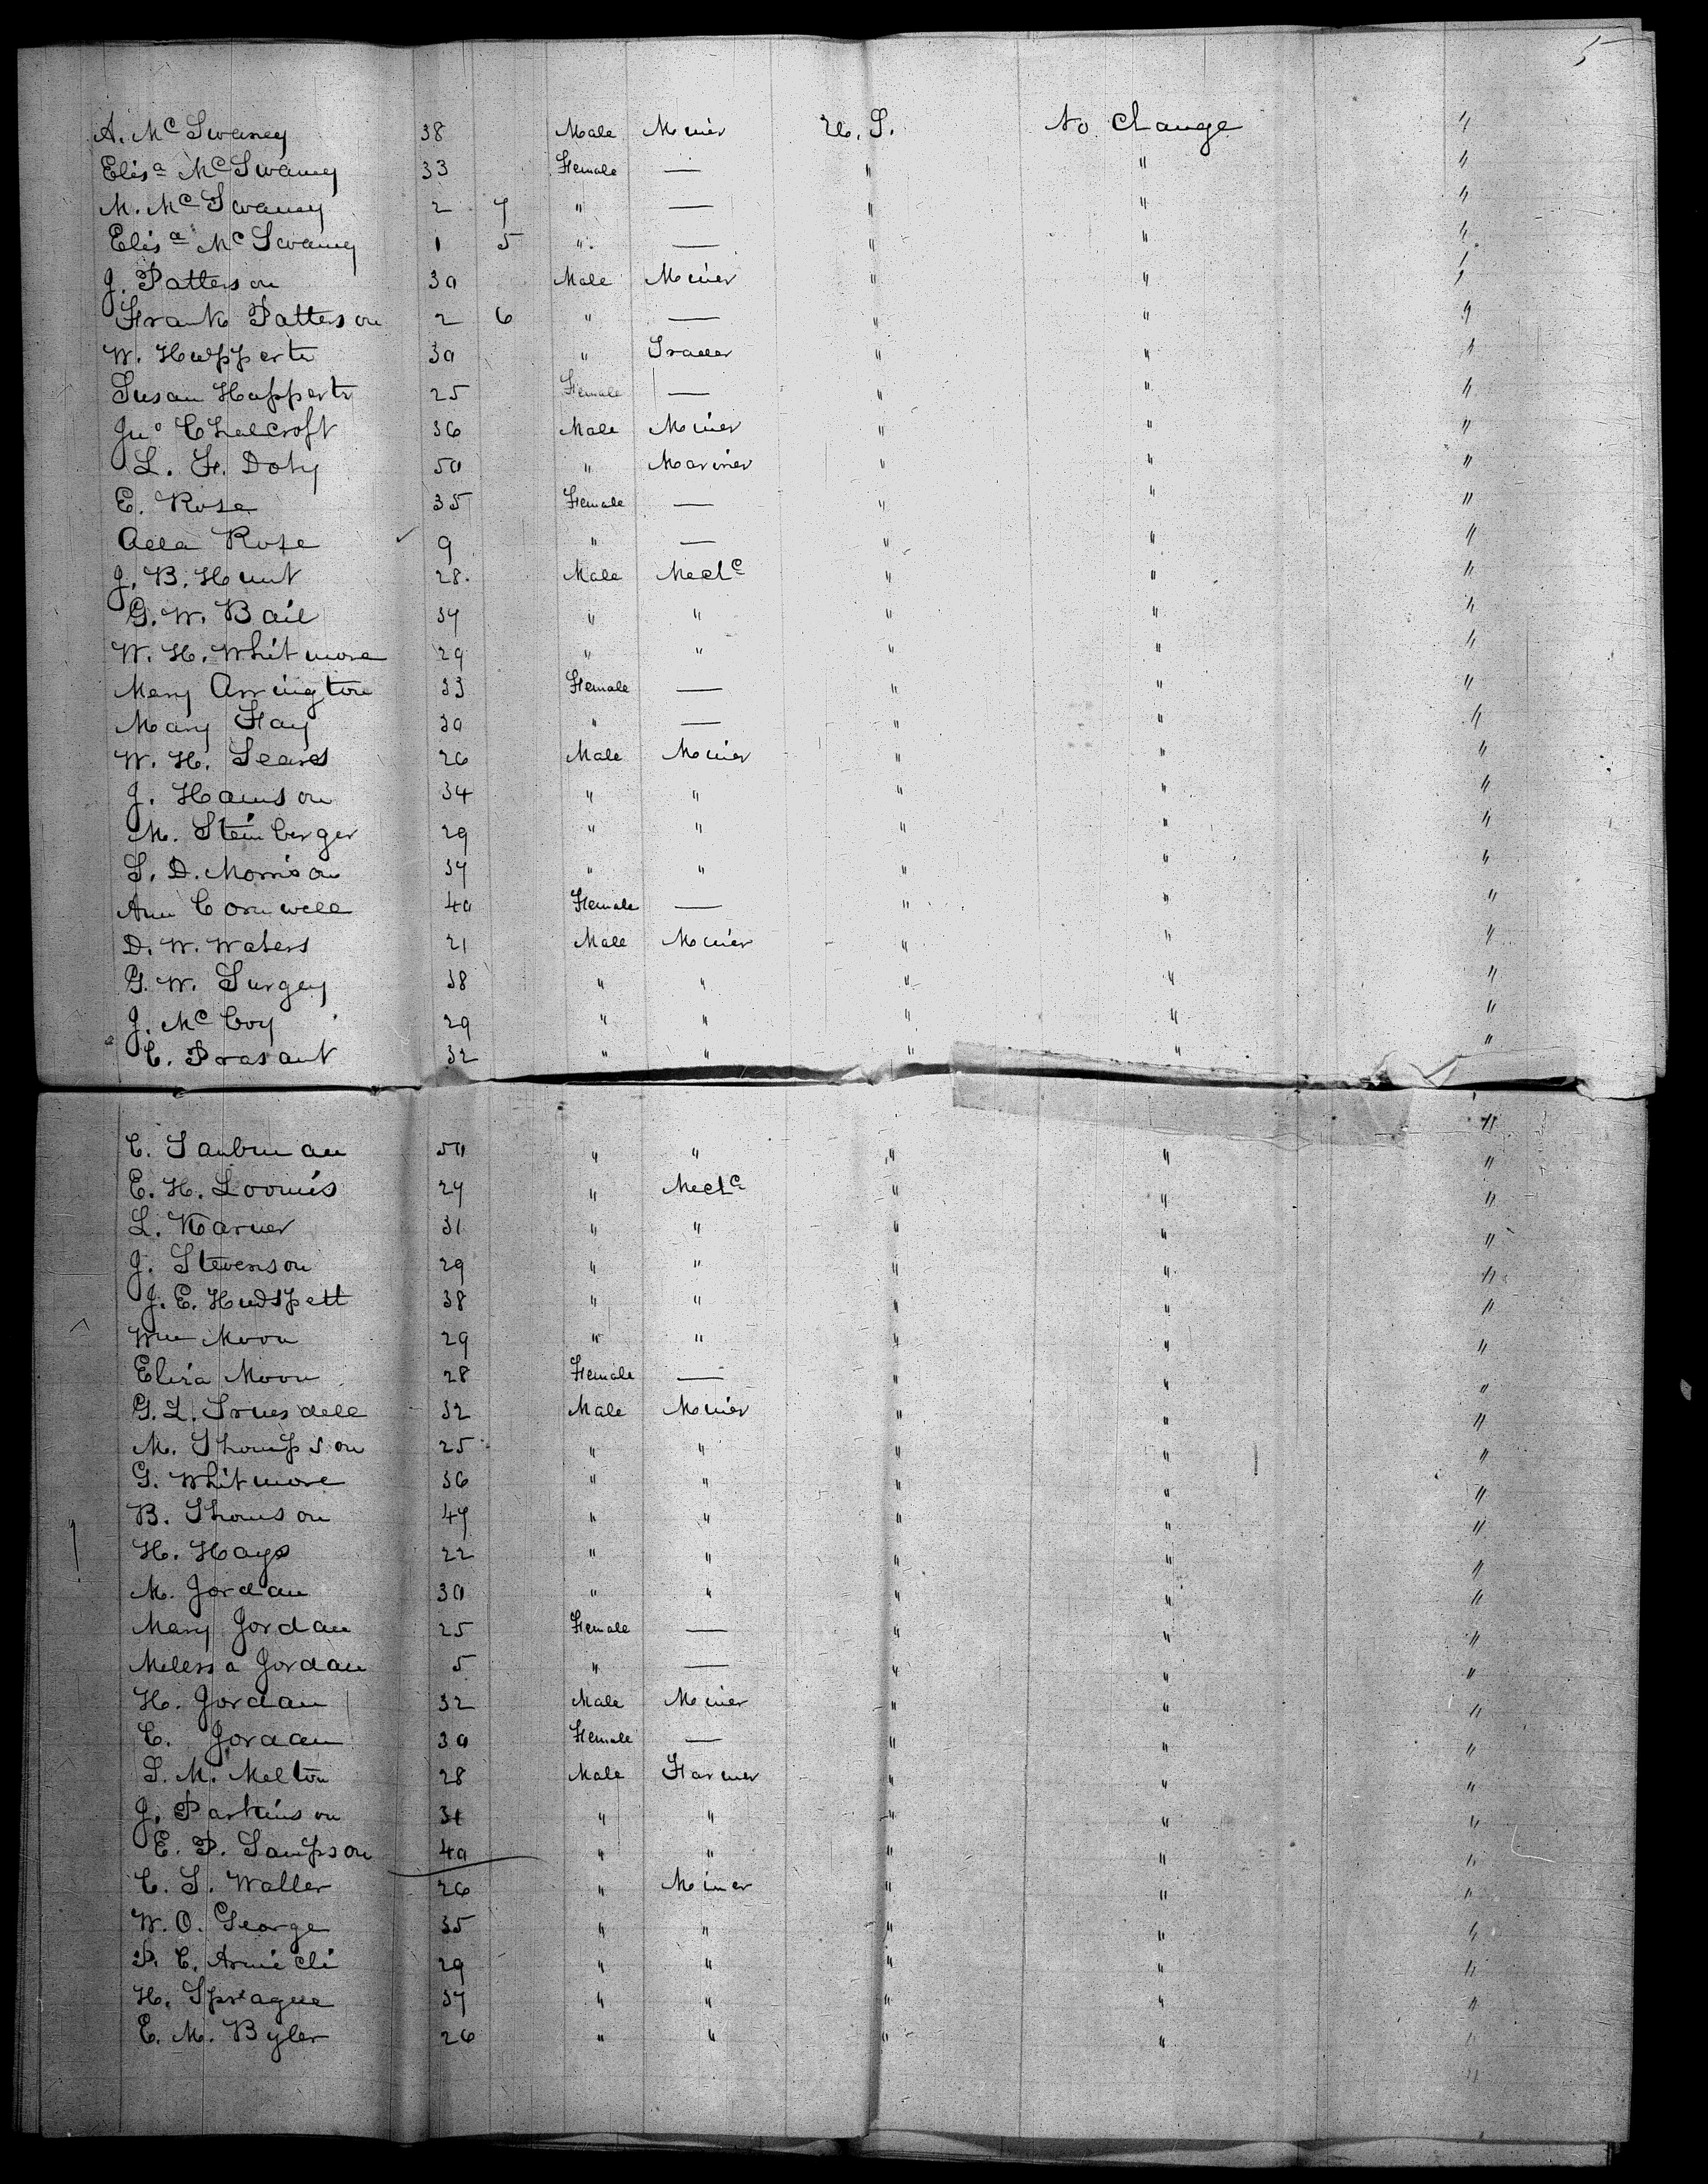 5
A. Mc Swaney 38 Male Miner U. S. No Change "
Elisa McSwaney 33 Female — " " "
M. Mc Swaney 2 7 " — " " "
Elisa Mc Swaney 1 5 " — " " "
J. Patterson 30 Male Miner " " "
Frank Patterson 2 6 " — " " "
W. Huppertz 30 " Trader " " "
Susan Huppertz 25 Female — " " "
Jno Chalcroft 36 Male Miner " " "
L. F. Doty 50 " Mariner " " "
E. Rose 35 Female — " " "
Rose 9 " — " " "
J. B. Hunt 28. Male Mechc " " "
G. W. Bail 37 " " " " "
W. H. Whitmore 29 " " " " "
Mary Arrington 33 Female — " " "
Mary Fay 30 " — " " "
W. H. Sears 26 Male Miner " " "
J. Hanson 34 " " " " "
M. Steinberger 29 " " " " "
S. D. Morrison 37 " " " " "
Ann Cornwell 40 Female — " " "
D. W. Waters 21 Male Miner " " "
G. W. Surgey 38 " " " " "
J. Mc Coy 29 " " " " "
C. Prasant 32 " " " " "
C. Taubman 50 " " " " "
E. H. Loomis 27 " Mechc " " "
L. Karner 31 " " " " "
J. Stevenson 29 " " " " "
J. E. Hudspett 38 " " " " "
Wm Moon 29 " " " " "
Eliza Moon 28 Female — " " "
G. L. Truesdell 32 Male Miner " " "
M. Thompson 25 " " " " "
G. Whitmore 36 " " " " "
B. Thomson 47 " " " " "
H. Hays 22 " " " " "
M. Jordan 30 " " " " "
Mary Jordan 25 Female — " " "
Melissa Jordan 5 " — " " "
H. Jordan 32 Male Miner " " "
C. Jordan 30 Female — " " "
S. M. Melton 28 Male Farmer " " "
J. Parkinson 31 " " " " "
E. P. Sampson 40 " " " " "
C. S. Waller 26 " Miner " " "
W. O. George 35 " " " " "
P. C. 29 " " " " "
H. Sprague 37 " " " " "
E. M. Byler 26 " " " " "